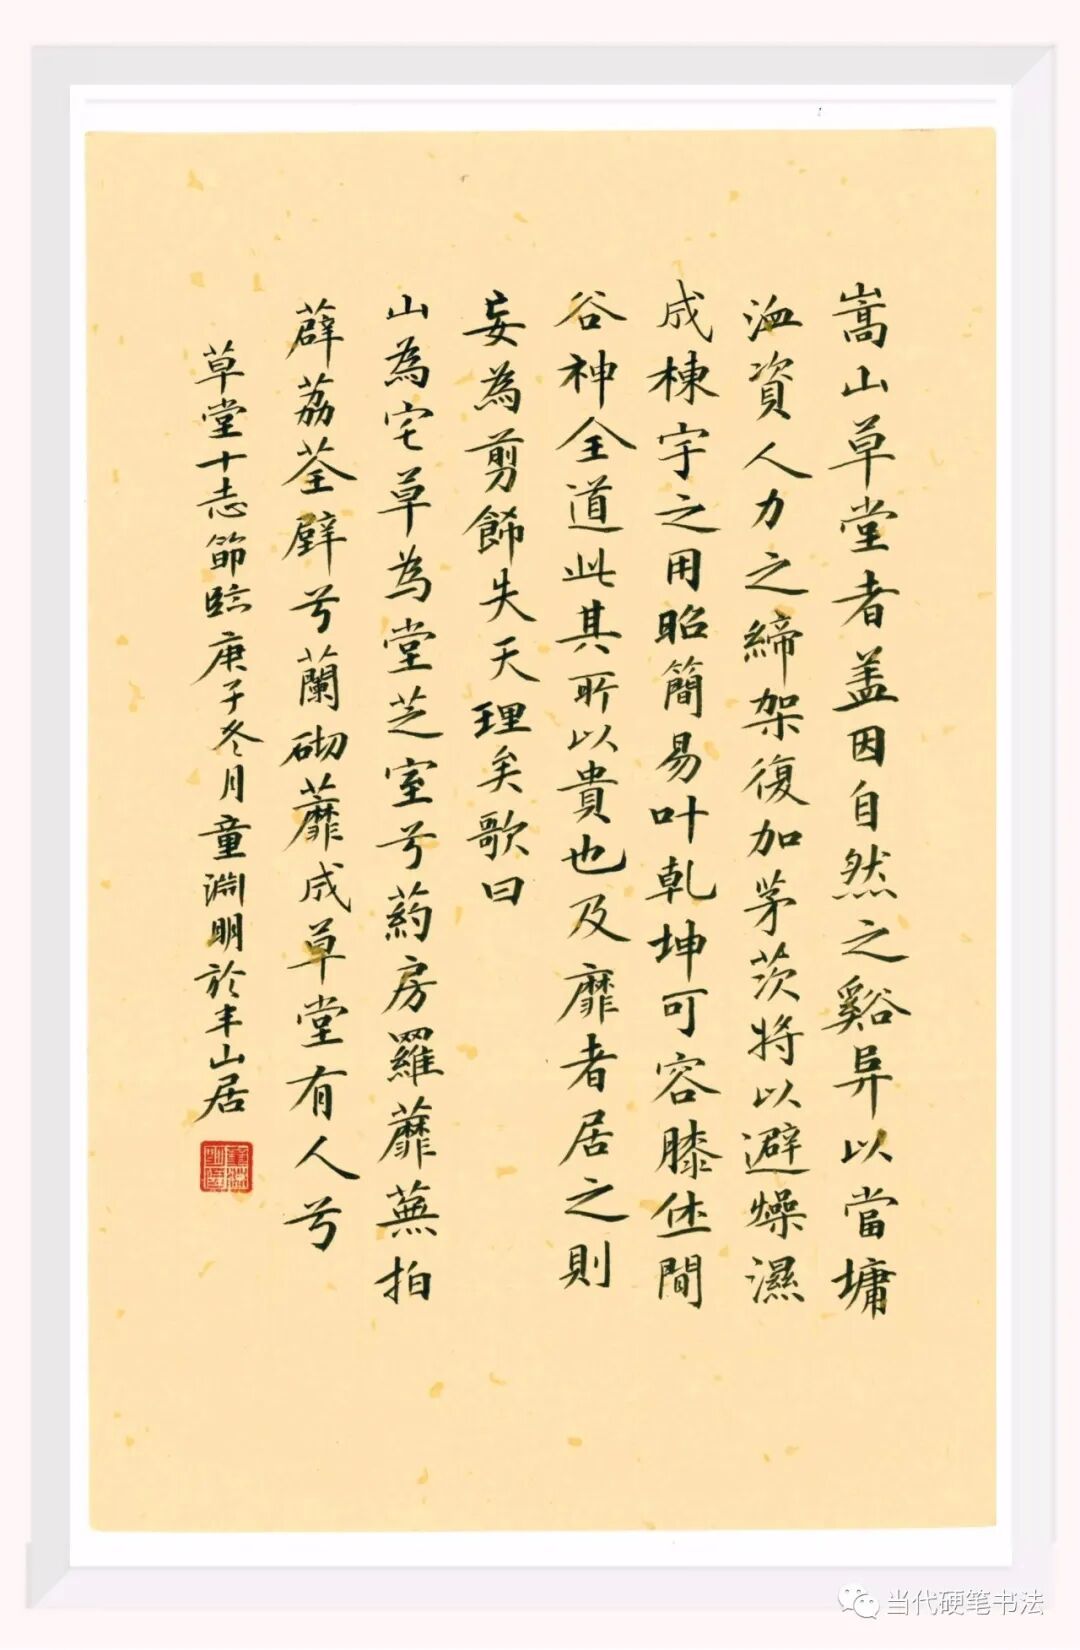 嵩山草堂者盖因自然之谿异以當墉
洫資人力之締架復加茅茨將以避燥濕
成棟宇之用昭簡易叶乾坤可容膝休閒
谷神全道此其所以貴也及靡者居之則
妄為剪餙失天理矣歌曰
山為宅草為堂芝室兮葯房羅蘼蕪拍
薜荔荃壁兮蘭砌蘼成草堂有人兮
草堂十志節臨庚子冬月童淵明於丰山居
当代硬笔书法